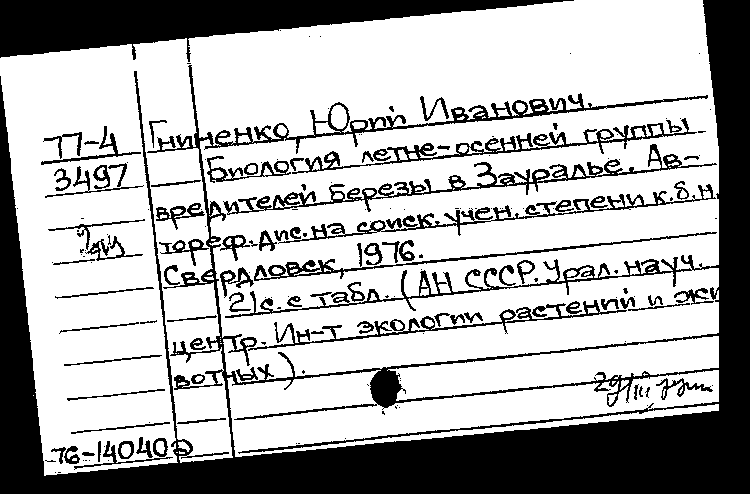 77-4 Гниненко, Юрий Иванович.
3497 Биология летне-осенней группы
вредителей березы в Зауралье. Ав-
тореф. дис. на соиск. учен. степени к.б.н.
Свердловск, 1976.
21 с. с табл. (АН СССР. Урал. науч.
центр. Ин-т экологии растений и жи
вотных).
76-14040